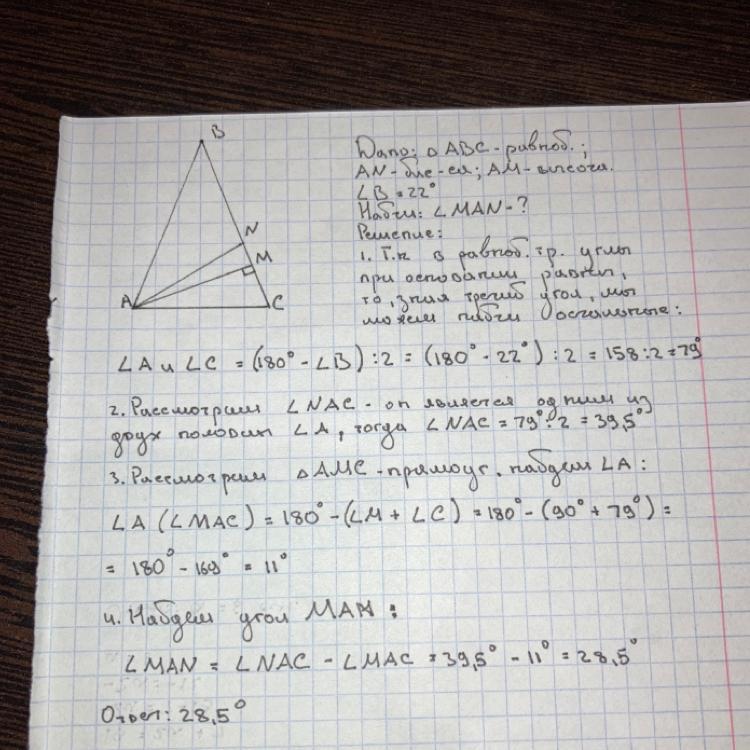 B
N
M
A
C
Дано: △ ABC - равноб.;
AN - бис-са; AM - высота.
∠B = 22°
Найти: ∠MAN - ?
Решение:
1. Т.к в равноб. тр. углы
при основании равны,
то, зная третий угол, мы
можем найти остальные:
∠A и ∠C = (180° - ∠B) : 2 = (180° - 22°) : 2 = 158 : 2 = 79°
2. Рассмотрим ∠NAC - он является одним из
двух половин ∠A, тогда ∠NAC = 79° : 2 = 39,5°
3. Рассмотрим △AMC - прямоуг. найдем ∠A:
∠A (∠MAC) = 180° - (∠M + ∠C) = 180° - (90° + 79°) =
= 180° - 169° = 11°
4. Найдем угол MAN:
∠MAN = ∠NAC - ∠MAC = 39,5° - 11° = 28,5°
Ответ: 28,5°